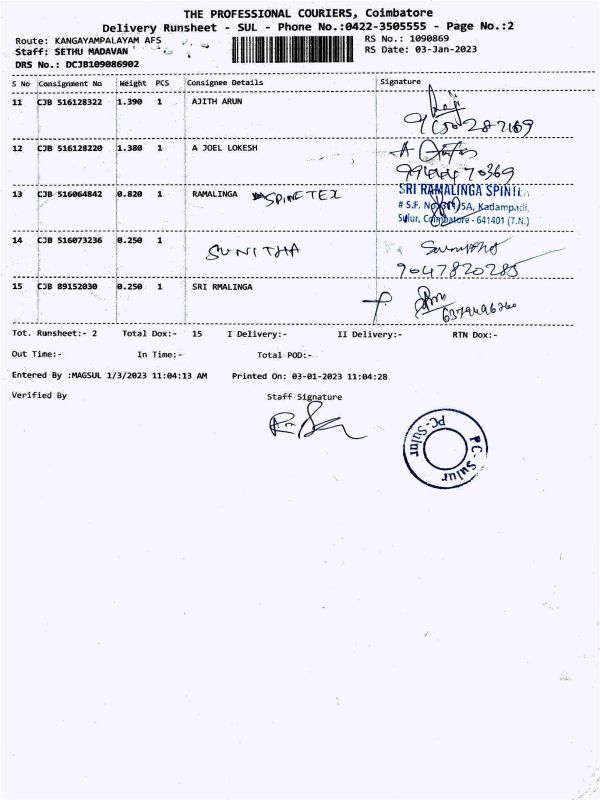 THE PROFESSIONAL COURIERS, Coimbatore
Delivery Runsheet - SUL - Phone No.:0422-3505555 - Page No.:2
Route: KANGAYAMPALAYAM AFS
RS No.: 1090869
Staff: SETHU MADAVAN
RS Date: 03-Jan-2023
DRS No.: DCJB109086902
S No Consignment No Weight PCS Consignee Details Signature
11 CJB 516128322 1.390 1 AJITH ARUN
12 CJB 516128220 1.380 1 A JOEL LOKESH
9944470369
13 CJB 516064842 0.820 1 RAMALINGA SPINETEX
SRI RAMALINGA SPINTE
# S.F. No 5A, Kadampadi,
Sulur, Coimbatore - 641401 (T.N.)
14 CJB 516073236 0.250 1 SUNITHA
9047820285
15 CJB 89152030 0.250 1 SRI RMALINGA
Tot. Runsheet:- 2 Total Dox:- 15 I Delivery:- II Delivery:- RTN Dox:-
Out Time:- In Time:- Total POD:-
Entered By :MAGSUL 1/3/2023 11:04:13 AM Printed On: 03-01-2023 11:04:28
Verified By Staff Signature
PC-Sulur
PC-Sulur